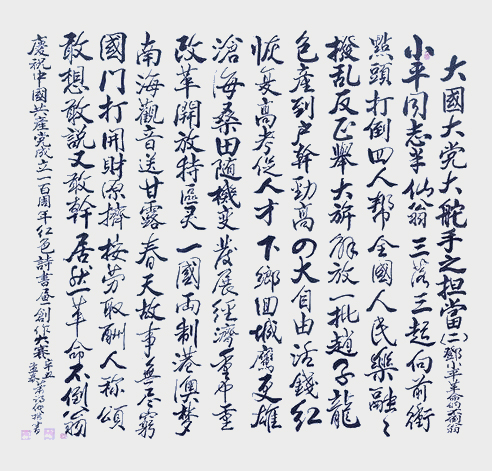 大國大党大舵手之担當(二)鄧小平革命的不倒翁
小平同志半仙翁三落三起向前衝
點頭打倒四人帮全國人民樂融々
撥乱反正舉大旂解放一批趙子龍
包產到户幹勁高の大自由活錢紅
恢复高考促人才下鄉回城鹰更雄
滄海桑田隨機变發展經濟重中重
改革開放特區灵一國両制港澳梦
南海觀音送甘露春天故事無尽窮
國门打開財源擠按劳取酬人称頌
敢想敢說又敢幹居然一革命不倒翁
慶祝中國共產党成立一百周年紅色詩書画创作大赛辛丑